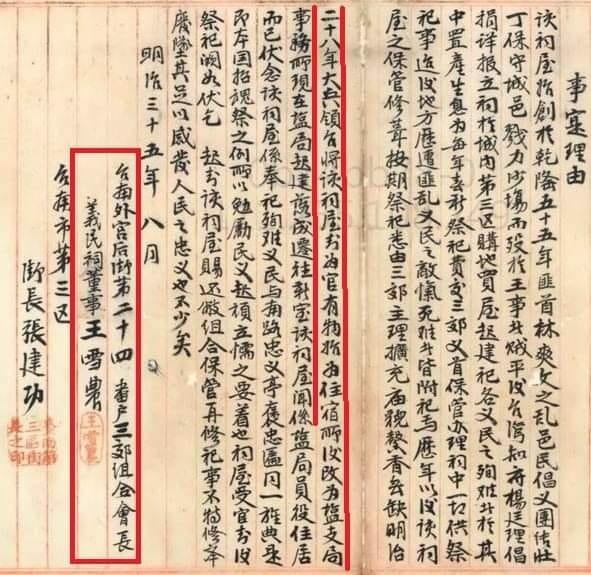 事實理由
該祠屋指創於乾隆五十五年匪首林爽文之亂邑民倡义團結壯
丁保守城邑戮力沙場而歿於王事者賊平後台灣知府楊廷理倡
捐详报立祠於城内第三区購地買屋起建祀各义民之殉难者於其
中置產生息为每年春秋祭祀費交三郊义首保管办理祠中一切供祭
祀事迨後地方歷遭匪乱义民之敵愾死难者皆附祀焉歷年以後该祠
屋之保管修葺按期祭祀悉由三郊主理擴充庙貌馨香無缺明治
二十八年大兵領台将该祠屋封为官有物指为住宿所後改为塩支局
事務所現在塩局起建落成遷往新室该祠屋聞係塩局員役住居
而已伏念该祠屋係奉祀殉难义民与南路忠义亭褒忠匾同一旌典是
即本国招魂祭之例所以勉勵民义起頑立懦之要着也祠屋受官封後
祭祀洇如伏乞 起封该祠屋賜还俶组合保管再修祀事不特修举
廢墜其足以感發人民之忠义也不少矣
明治三十五年八月
台南外宮后街第二十四番戶三郊组合會長
義民祠董事王雪農
台南市第三区
街長張建功